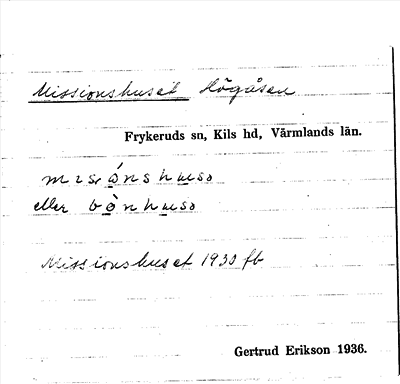 Missionshuset Högåsen
Frykeruds sn, Kils hd, Värmlands län.
eller
Missionshuset 1933 fb
Gertrud Erikson 1936.